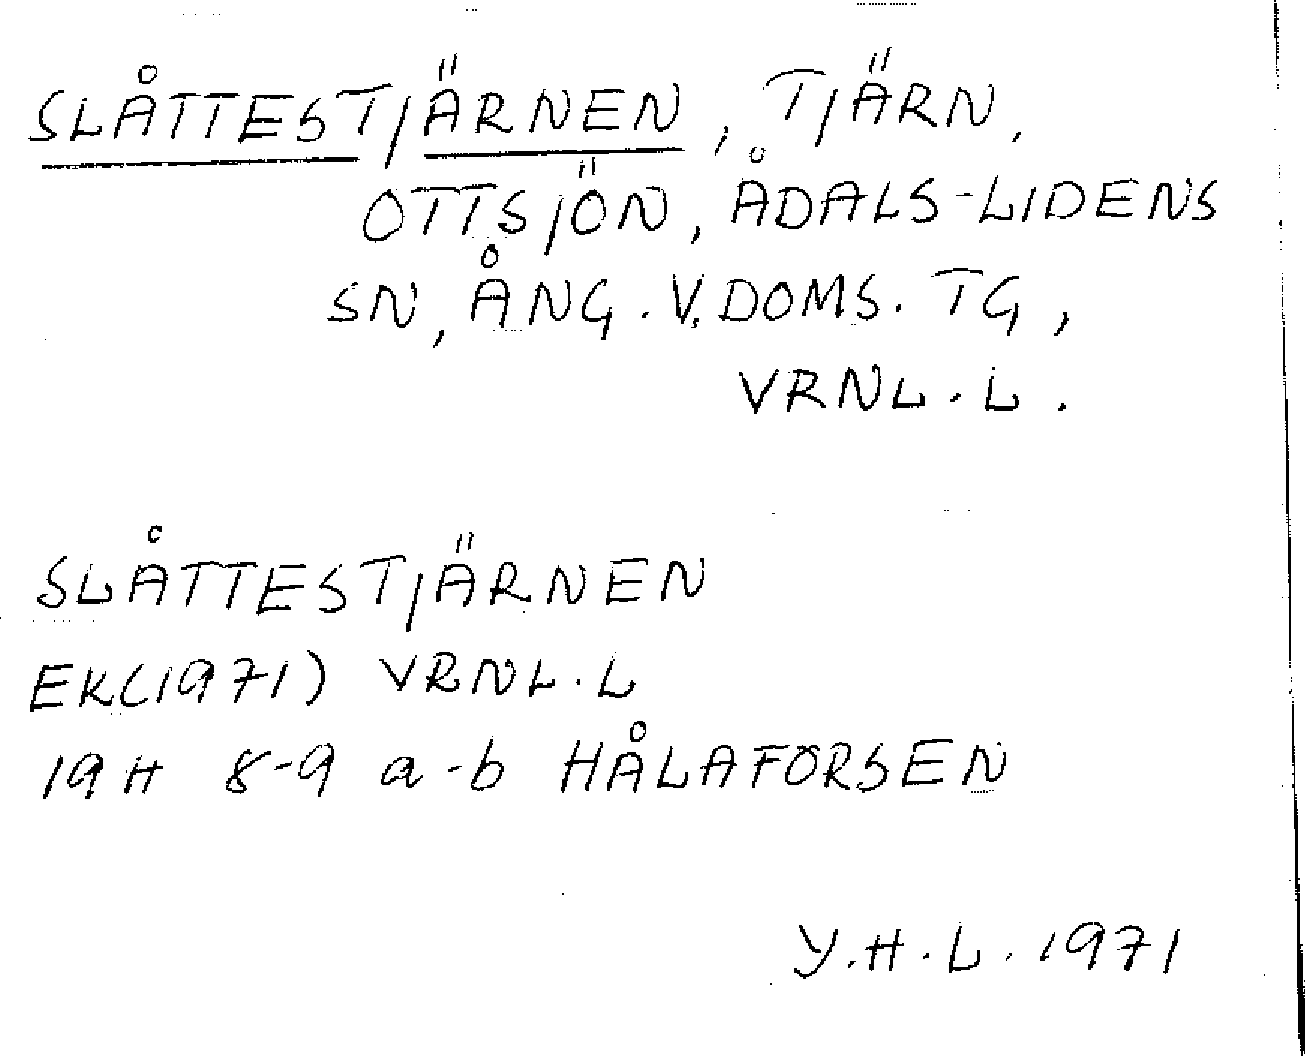 SLÅTTESTJÄRNEN, TJÄRN,
OTTSJÖN, ÅDALS-LIDENS
SN, ÅNG. V. DOMS. TG,
VRNL. L.
SLÅTTESTJÄRNEN
EK(1971) VRNL. L
19 H 8-9 a-b HÅLAFORSEN
Y.H.L. 1971